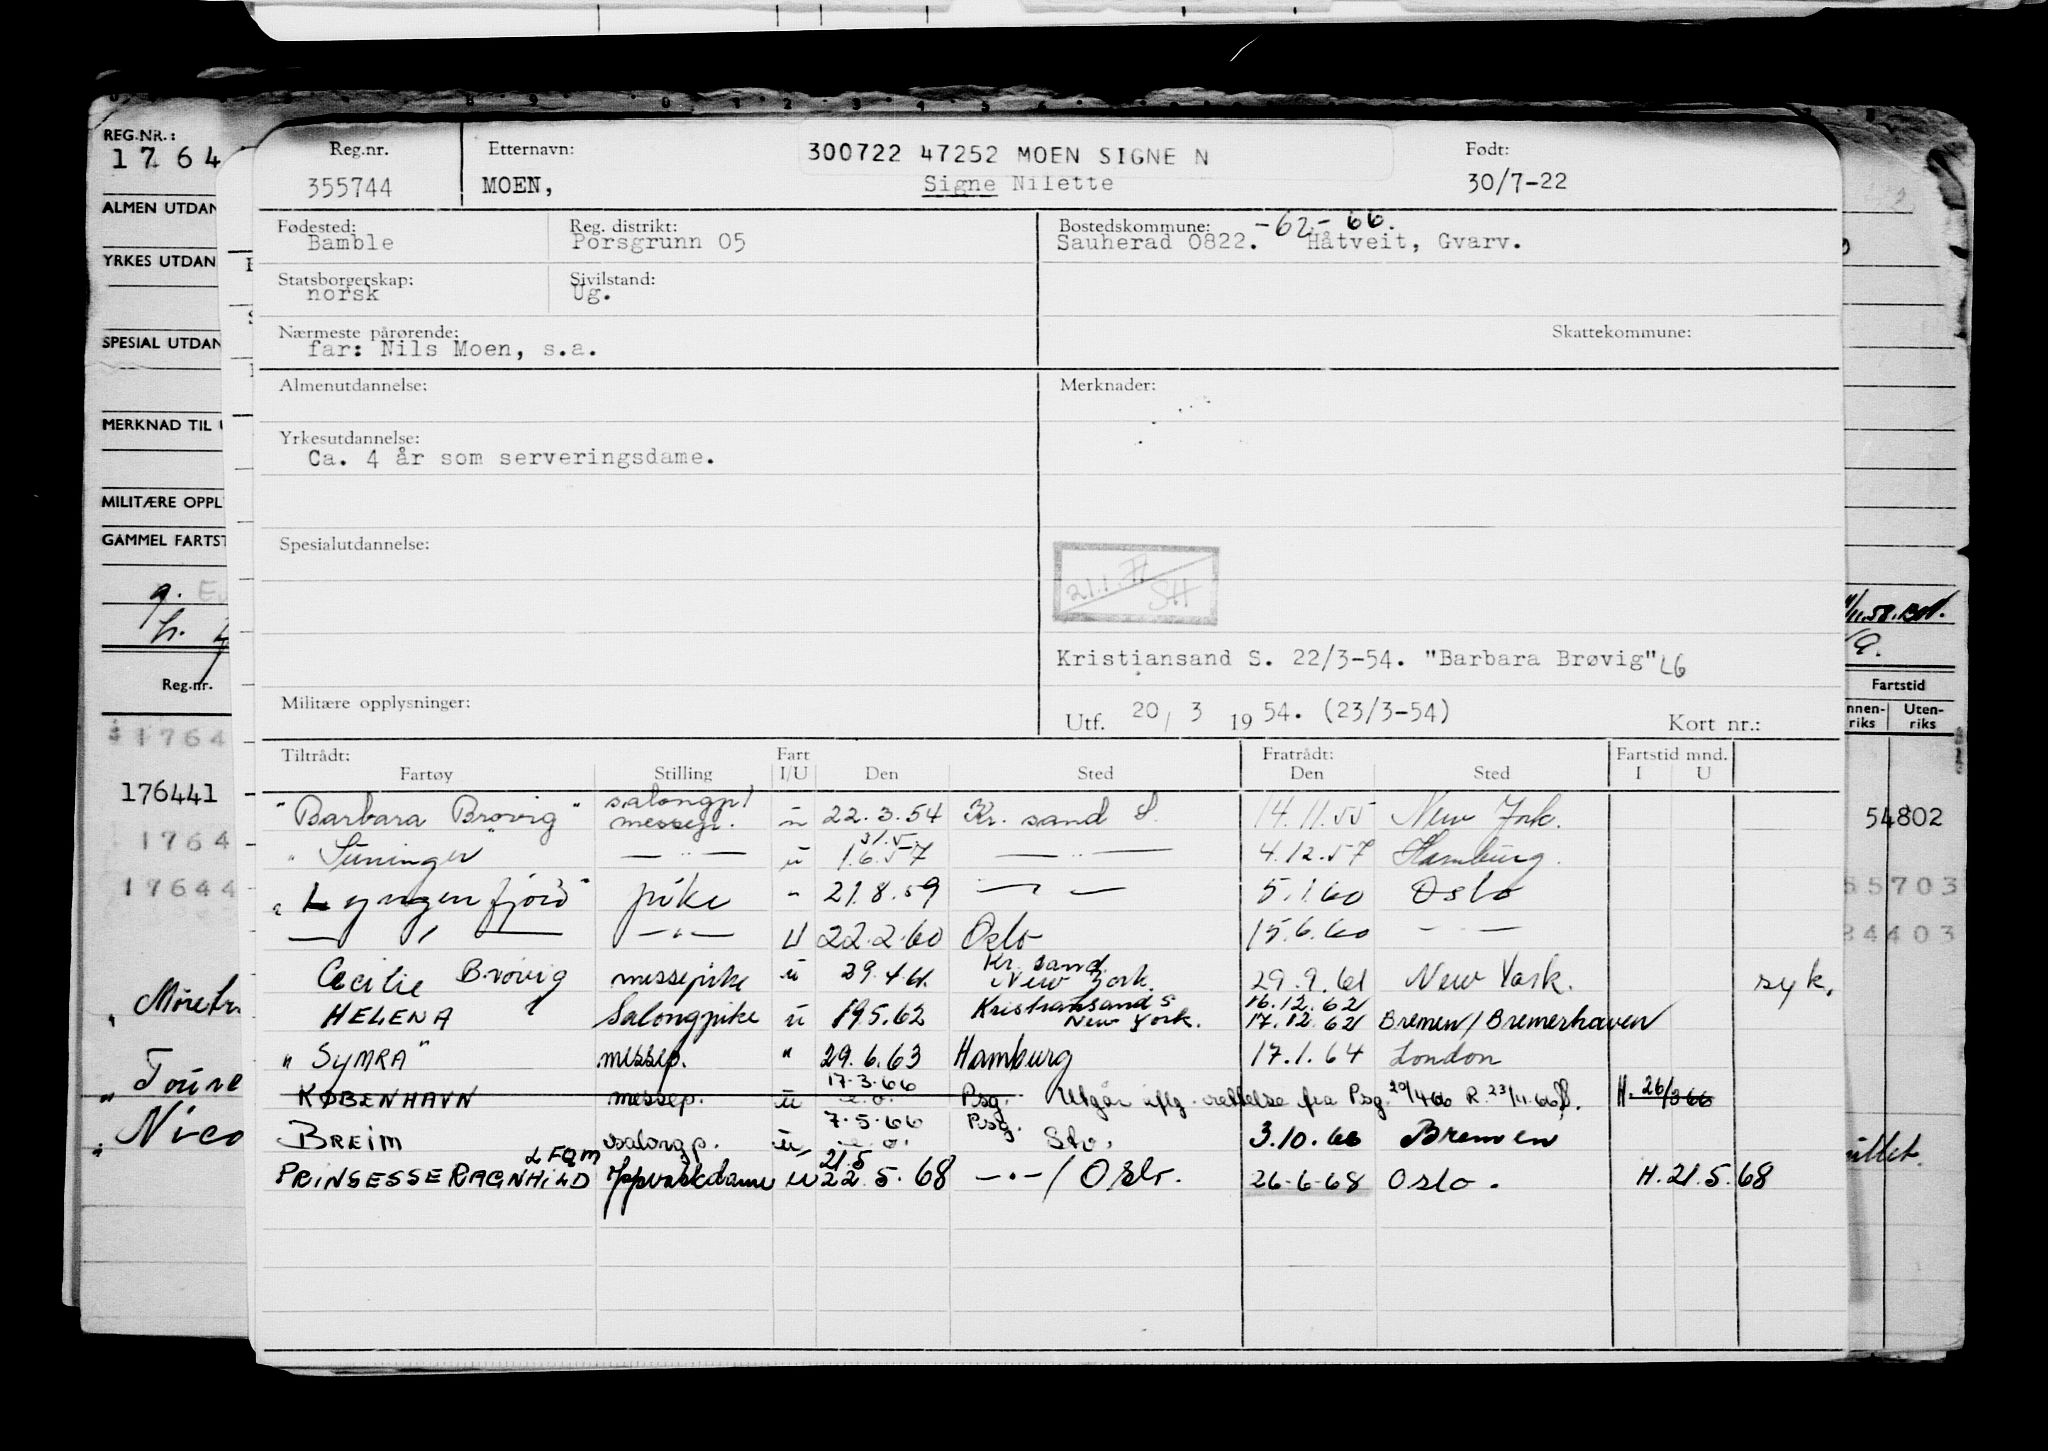 REG.NR.:
1764
ALMEN UTDAN
YRKES UTDAN
SPESIAL UTDAN
MERKNAD TIL U
MILITÆRE OPPL
GAMMEL FARTST
Reg.nr.
1764
176441
1764
17644
Møretr
Toure
Nico
Reg.nr.
355744
Etternavn:
MOEN,
300722 47252 MOEN SIGNE N
Signe Nilette
Født:
30/7-22
Fødested:
Bamble
Reg. distrikt:
Porsgrunn 05
Bostedskommune: -62-66.
Sauherad 0822. Håtveit, Gvarv.
Statsborgerskap:
norsk
Sivilstand:
Ug.
Nærmeste pårørende:
far: Nils Moen, s.a.
Skattekommune:
Almenutdannelse:
Merknader:
Yrkesutdannelse:
Ca. 4 år som serveringsdame.
Spesialutdannelse:
SH
Kristiansand S. 22/3-54. "Barbara Brøvig" LG
Militære opplysninger:
Utf. 20/ 3 1954. (23/3-54)
Kort nr.:
Tiltrådt: Fart Fratrådt: Fartstid mnd.
Fartøy Stilling I/U Den Sted Den Sted I U
salongp/
"Barbara Brøvig" messep. u 22.3.54 Kr. sand S. 14.11.55 New York.
31.5
" — " — u 1.6.57 — " — 4.12.57 Hamburg.
"Lyngenfjord" pike " 21.8.59 — " — 5.1.60 Oslo
— " — — " — U 22.2.60 Oslo 15.6.60 — " —
Kr. sand
Cecilie Brøvig messepike u 29.4.61. New York. 29.9.61 New York. syk.
Kristiansand S 16.12.62
HELENA Salongpike u 19.5.62 New York. 17.12.62 Bremen/Bremerhaven
"SYMRA" messep. " 29.6.63 Hamburg 17.1.64 London
17.3.66
KØBENHAVN messep. u e.o. Psg. Utgår iflg. rettelse fra Psg 20/4 66 R. 23/11.66 H. 26/3 66
7.5.66 Psg.
BREIM salongp. u e.o. Sto. 3.10.66 Bremen
LFQM 21.5
PRINSESSE RAGNHILD Oppvaskdame U 22.5.68 —.—/Oslo. 26-6-68 Oslo. H. 21.5.68
Fartstid
nnen-
riks
Uten-
riks
54802
55703
84403